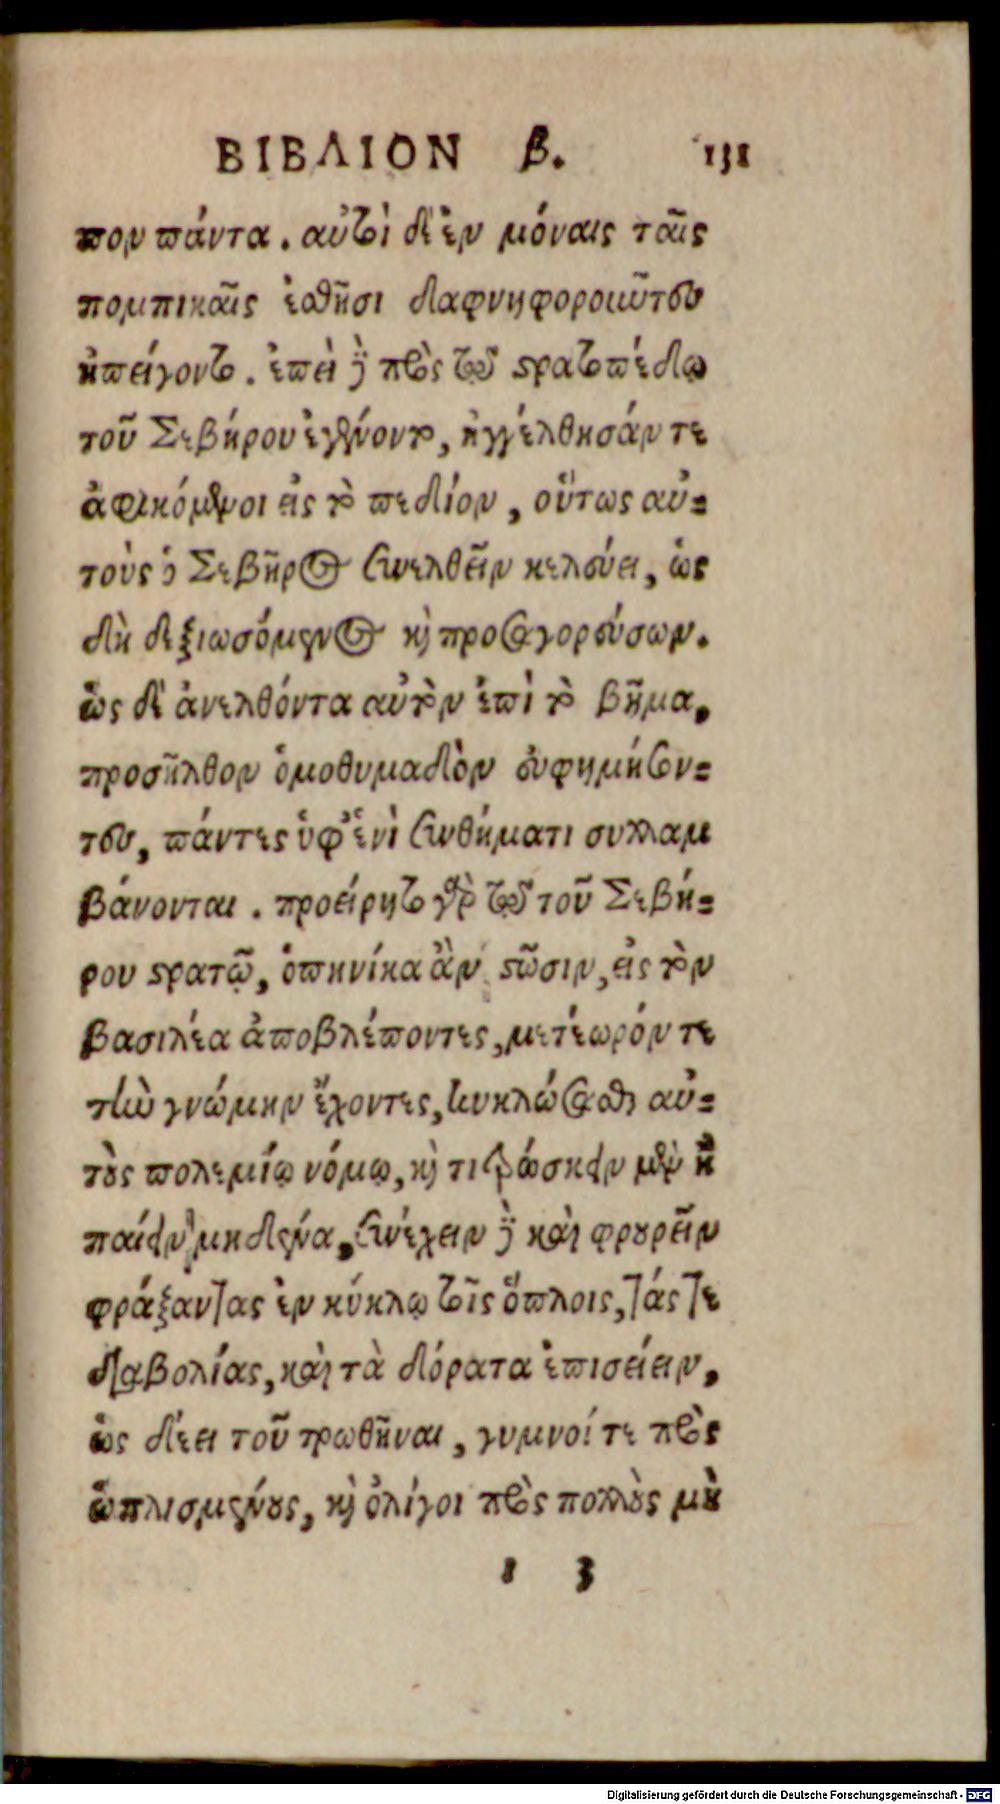 ΒΙΒΛΙΟΝ β. 131
που πάντα. αὐτοὶ δὲ ἐν μόναις ταῖς
πομπικαῖς ἐσθῆσι δαφνηφοροιῶντες
ἠπείγοντο. ἐπεὶ δὲ πρὸς τῷ στρατοπέδῳ
τοῦ Σεβήρου ἐγένοντο, ἠγγέλθησάν τε
ἀφικόμενοι εἰς τὸ πεδίον, οὕτως αὐ-
τοὺς ὁ Σεβῆρος συνελθεῖν κελεύει, ὡς
δὴ δεξιωσόμενος καὶ προσαγορεύσων.
ὡς δὲ ἀνελθόντα αὐτὸν ἐπὶ τὸ βῆμα,
προσῆλθον ὁμοθυμαδὸν εὐφημήσον-
τες, πάντες ὑφ' ἑνὶ συνθήματι συλλαμ
βάνονται. προείρητο γὰρ τῷ τοῦ Σεβή-
ρου στρατῷ, ὁπηνίκα ἂν στῶσιν, εἰς τὸν
βασιλέα ἀποβλέποντες, μετέωρόν τε
τὴν γνώμην ἔχοντες, κυκλώσασθαι αὐ-
τοὺς πολεμίῳ νόμῳ, καὶ τιτρώσκειν μὲν ἢ
παίειν μηδένα, συνέχειν δὲ καὶ φρουρεῖν
φράξαντας ἐν κύκλῳ τοῖς ὅπλοις, τάς τε
διαβολίας, καὶ τὰ δόρατα ἐπισείειν,
ὡς δέει τοῦ τρωθῆναι, γυμνοί τε πρὸς
ὡπλισμένους, καὶ ὀλίγοι πρὸς πολλοὺς μὴ
ι 3
Digitalisierung gefördert durch die Deutsche Forschungsgemeinschaft - DFG